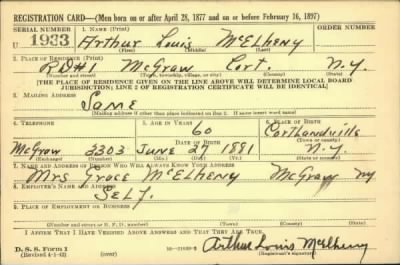 REGISTRATION CARD—(Men born on or after April 28, 1877 and on or before February 16, 1897)
SERIAL NUMBER 1. NAME (Print) ORDER NUMBER
U 1933 Arthur Louis McElheny
(First) (Middle) (Last)
2. PLACE OF RESIDENCE (Print)
RD#1 McGraw Cort. N.Y.
(Number and street) (Town, township, village, or city) (County) (State)
[THE PLACE OF RESIDENCE GIVEN ON THE LINE ABOVE WILL DETERMINE LOCAL BOARD
JURISDICTION; LINE 2 OF REGISTRATION CERTIFICATE WILL BE IDENTICAL]
3. MAILING ADDRESS
Same
(Mailing address if other than place indicated on line 2. If same insert word same)
4. TELEPHONE 5. AGE IN YEARS 6. PLACE OF BIRTH
60 Cortlandville
DATE OF BIRTH (Town or county)
McGraw 3303 June 27 1881 N.Y.
(Exchange) (Number) (Mo.) (Day) (Yr.) (State or country)
7. NAME AND ADDRESS OF PERSON WHO WILL ALWAYS KNOW YOUR ADDRESS
Mrs Grace McElheny McGraw NY
8. EMPLOYER'S NAME AND ADDRESS
Self
9. PLACE OF EMPLOYMENT OR BUSINESS
(Number and street or R. F. D. number) (Town) (County) (State)
I AFFIRM THAT I HAVE VERIFIED ABOVE ANSWERS AND THAT THEY ARE TRUE.
D. S. S. Form 1
(Revised 4-1-42) (over) Arthur Louis McElheny
(Registrant's signature)